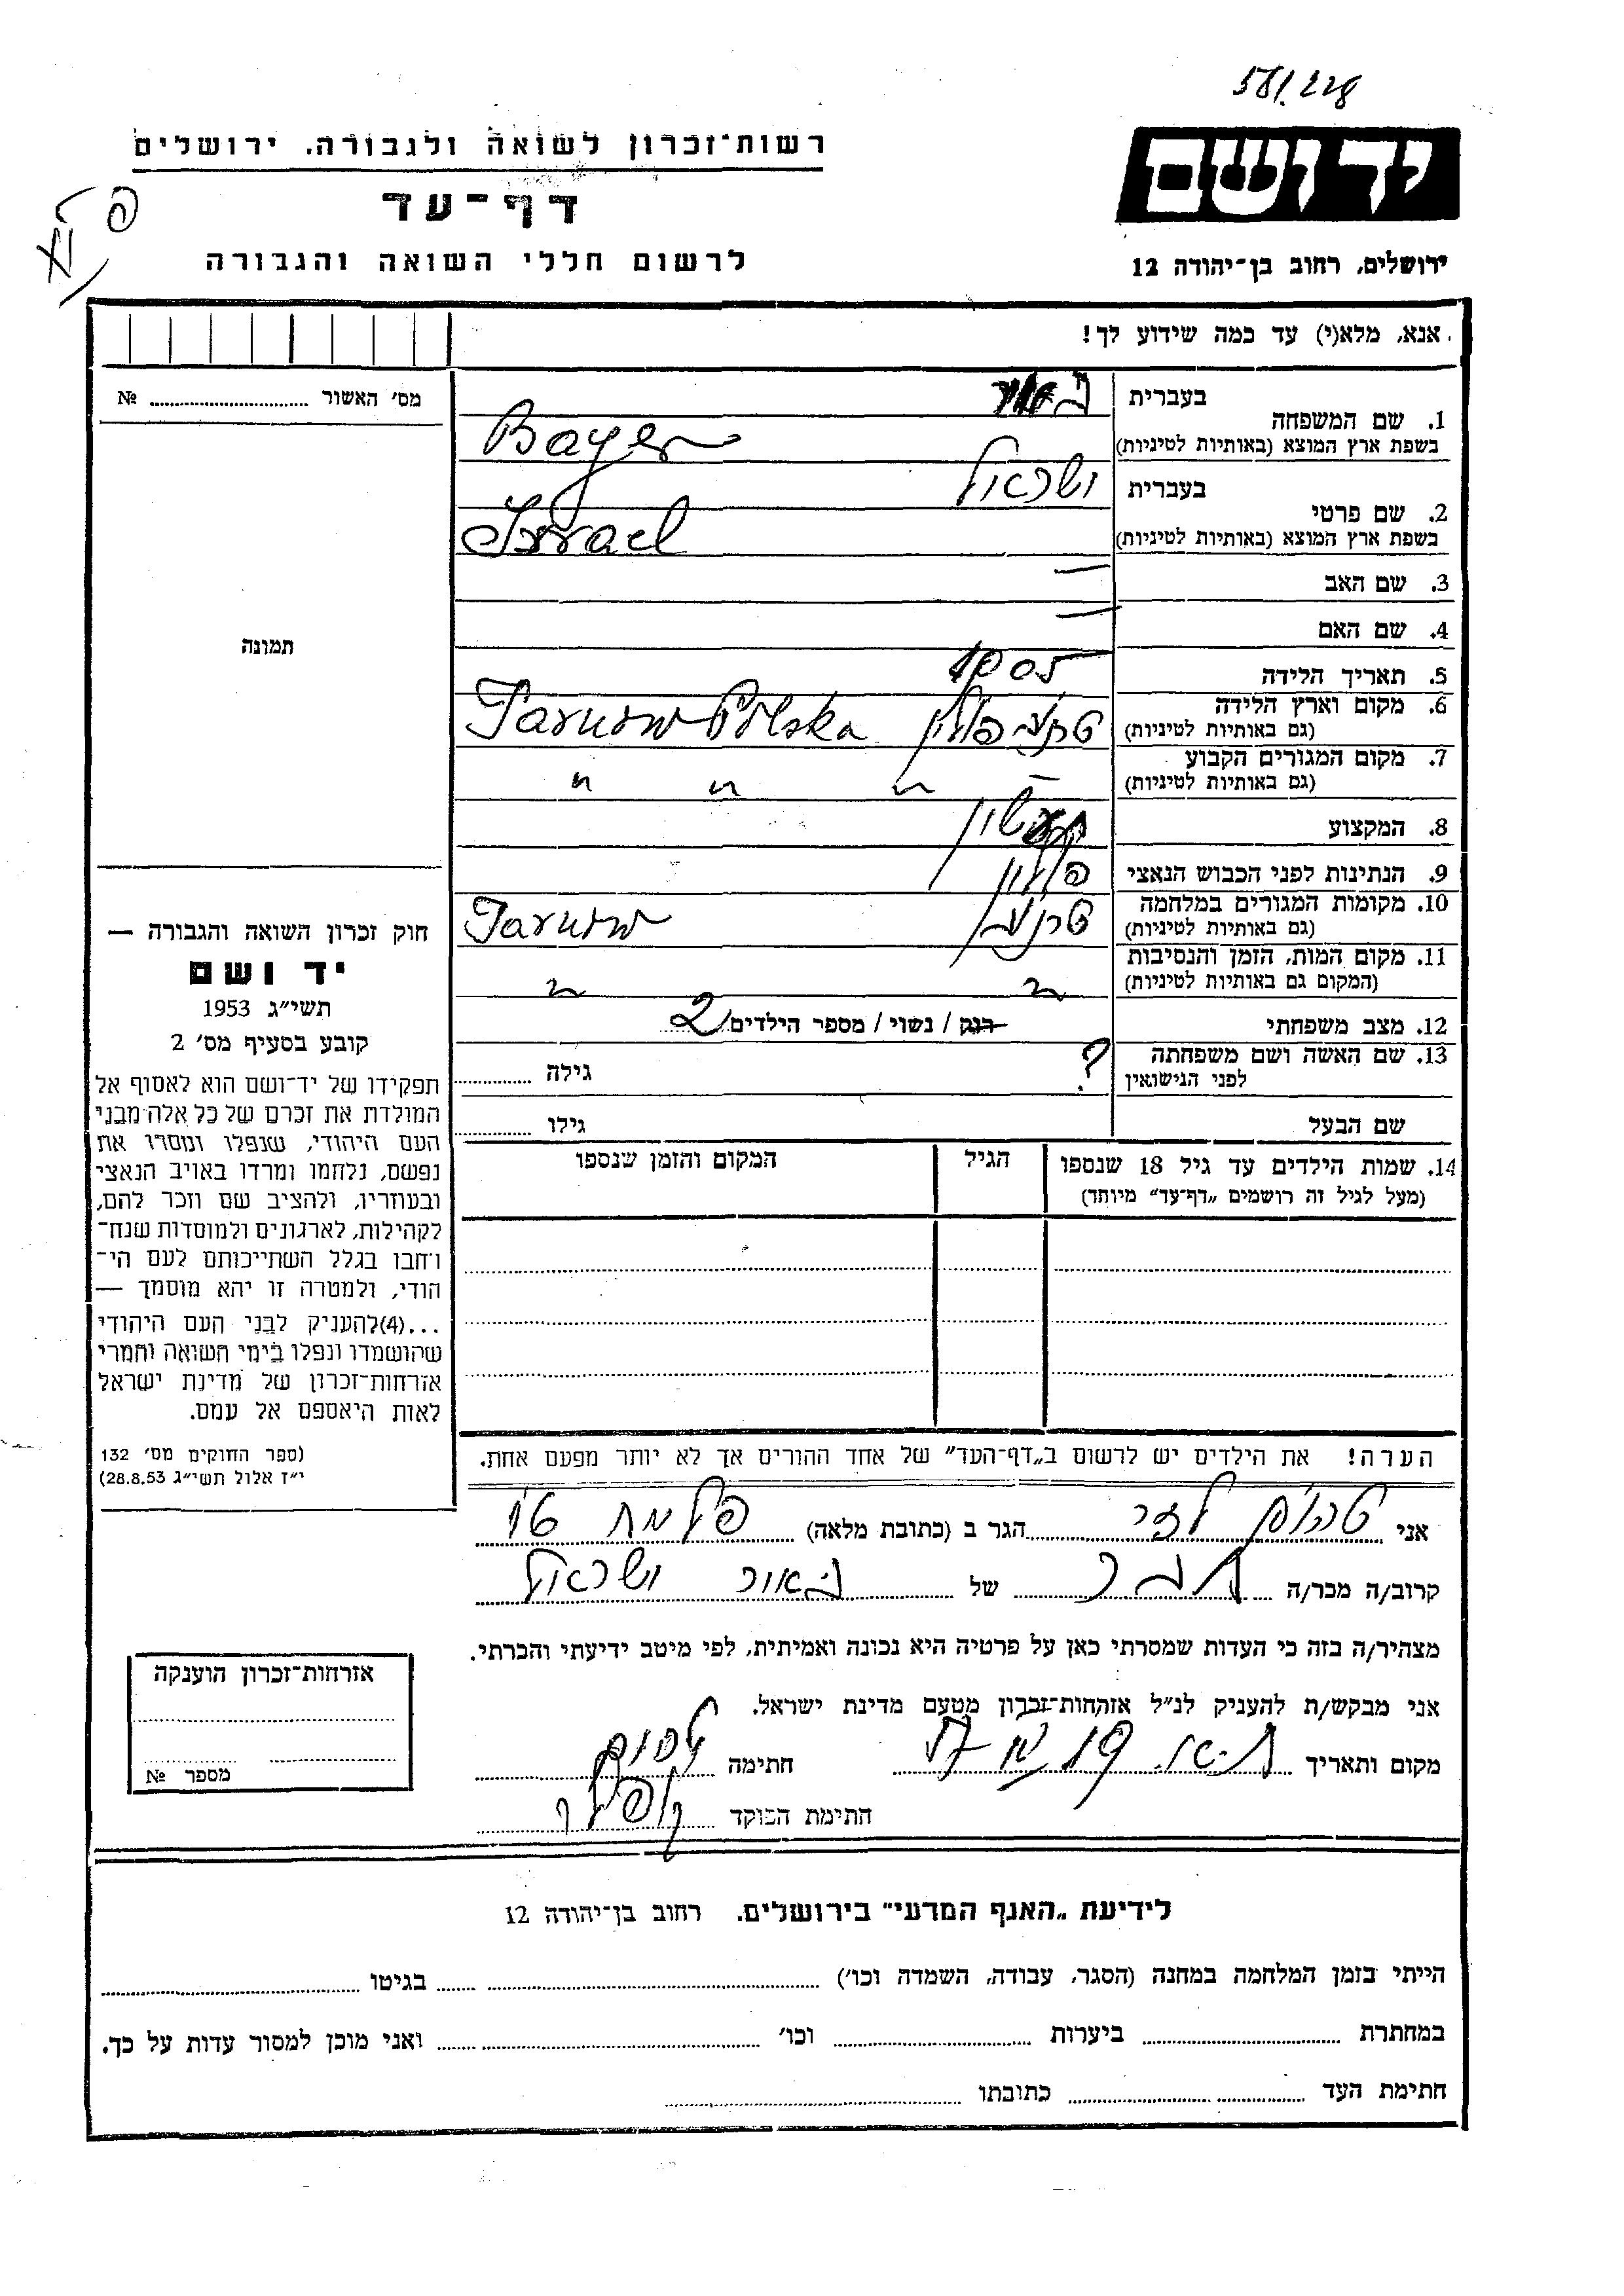 581.228
יד ושם
ירושלים, רחוב בן־יהודה 12
רשות־זכרון לשואה ולגבורה, ירושלים
דף־עד
לרשום חללי השואה והגבורה
אנא, מלא(י) עד כמה שידוע לך!
מס׳ האשור № 
1. שם המשפחה
בעברית
בשפת ארץ המוצא (באותיות לטיניות) Bayer
2. שם פרטי
בעברית ישראל
בשפת ארץ המוצא (באותיות לטיניות) Israel
3. שם האב —
4. שם האם —
5. תאריך הלידה 1905
6. מקום וארץ הלידה
(גם באותיות לטיניות) טרנוב פולין Tarnow Polska
7. מקום המגורים הקבוע
(גם באותיות לטיניות) " " "
8. המקצוע
9. הנתינות לפני הכבוש הנאצי פולין
10. מקומות המגורים במלחמה
(גם באותיות לטיניות) טרנוב Tarnow
11. מקום המות, הזמן והנסיבות
(המקום גם באותיות לטיניות) " "
12. מצב משפחתי רוק / נשוי / מספר הילדים 2
13. שם האשה ושם משפחתה
לפני הנישואין ? גילה
שם הבעל גילו
14. שמות הילדים עד גיל 18 שנספו
(מעל לגיל זה רושמים „דף־עד״ מיוחד)
הגיל
המקום והזמן שנספו
הערה! את הילדים יש לרשום ב„דף־העד״ של אחד ההורים אך לא יותר מפעם אחת.
תמונה
חוק זכרון השואה והגבורה —
יד ושם
תשי״ג 1953
קובע בסעיף מס׳ 2
תפקידו של יד־ושם הוא לאסוף אל
המולדת את זכרם של כל אלה מבני
העם היהודי, שנפלו ומסרו את
נפשם, נלחמו ומרדו באויב הנאצי
ובעוזריו, ולהציב שם וזכר להם,
לקהילות, לארגונים ולמוסדות שנח־
רחבו בגלל השתייכותם לעם הי־
הודי, ולמטרה זו יהא מוסמך —
...(4)להעניק לבני העם היהודי
שהושמדו ונפלו בימי השואה והמרי
אזרחות־זכרון של מדינת ישראל
לאות היאספם אל עמם.
(ספר החוקים מס׳ 132
י״ז אלול תשי״ג 28.8.53)
אני הגר ב (כתובת מלאה)
קרוב/ה מכר/ה חבר של באיר ישראל
מצהיר/ה בזה כי העדות שמסרתי כאן על פרטיה היא נכונה ואמיתית, לפי מיטב ידיעתי והכרתי.
אני מבקש/ת להעניק לנ״ל אזרחות־זכרון מטעם מדינת ישראל.
מקום ותאריך חתימה
חתימת הפוקד
אזרחות־זכרון הוענקה
מספר №
לידיעת „האגף המדעי״ בירושלים. רחוב בן־יהודה 12
הייתי בזמן המלחמה במחנה (הסגר, עבודה, השמדה וכו׳) בגיטו
במחתרת ביערות וכו׳ ואני מוכן למסור עדות על כך.
חתימת העד כתובתו